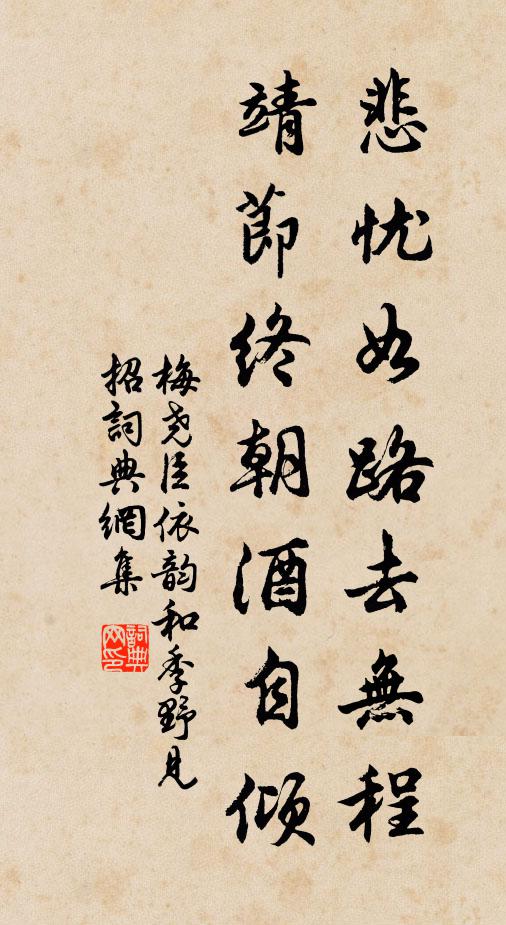 悲忧如路去無程
靖節终朝酒自倾
梅尧臣依韵和季野見
招詞典網集
詞典網印